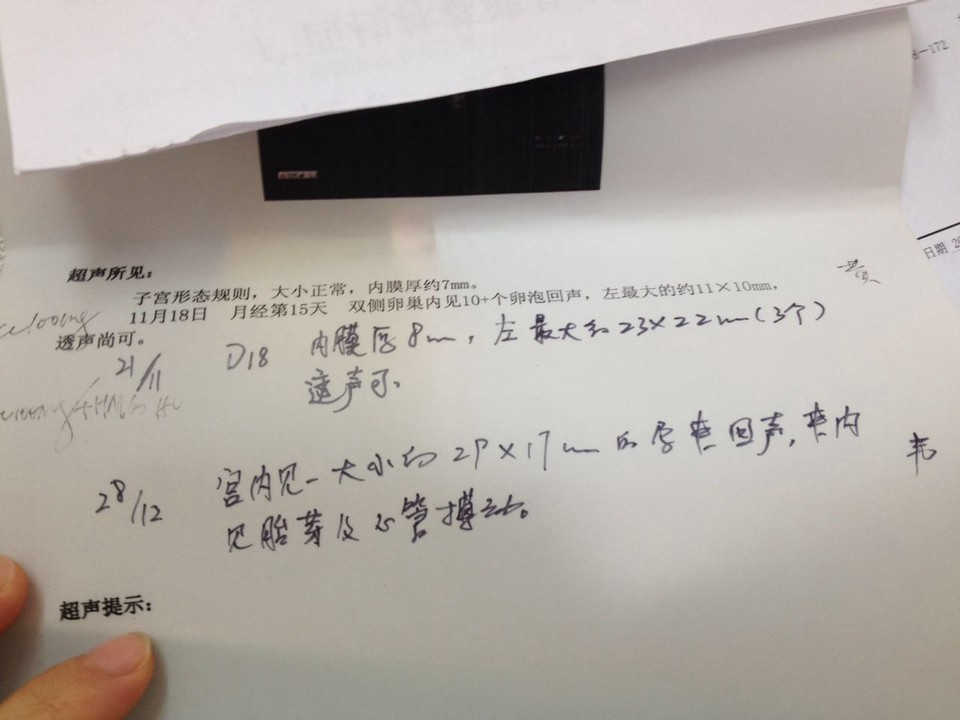 8-172
日期
超声所见：
子宫形态规则，大小正常，内膜厚约7mm。
11月18日 月经第15天 双侧卵巢内见10+个卵泡回声，左最大的约11×10mm，
透声尚可。
21/11 D18 内膜厚8mm，左最大约23×22mm（3个）
透声可。
28/12 宫内见一大小约29×17mm的孕囊回声，囊内
见胎芽及心管搏动。
超声提示：